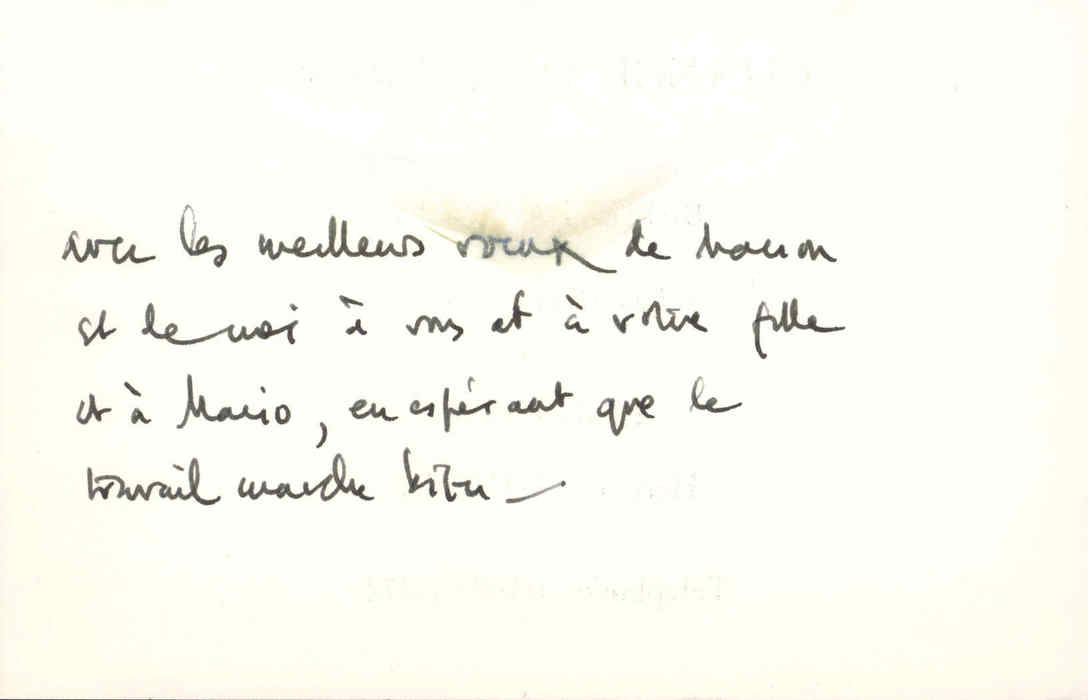 avec les meilleurs voeux de Marion
et de moi à vous et à votre fille
et à Mario, en espérant que le
travail marche bien —